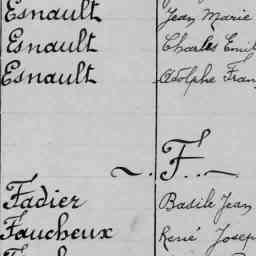 Esnault Jean Marie
Esnault Charles Emil
Esnault Adolphe Fran
F
Fadier Basile Jean
Faucheux René Josep